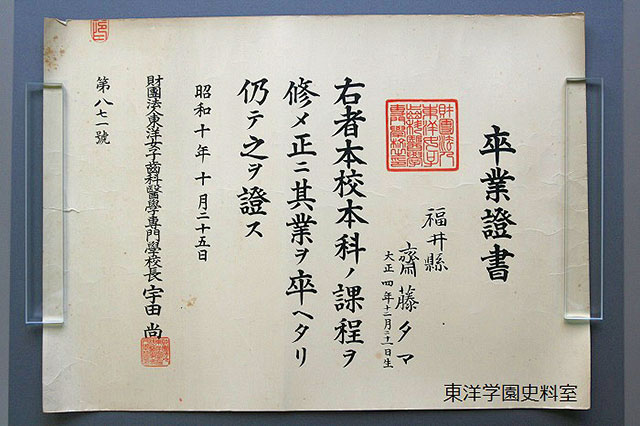 卒業證書
福井縣
齋藤タマ
大正四年十二月二十一日生
右者本校本科ノ課程ヲ
修メ正ニ其業ヲ卒ヘタリ
仍テ之ヲ證ス
昭和十年十月二十五日
財團法人東洋女子齒科醫學專門學校長 宇田 尚
第八七一號
東洋学園史料室